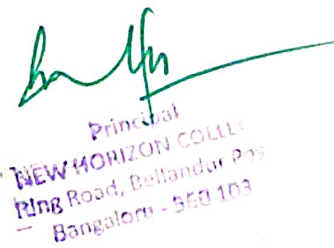 Principal
NEW HORIZON COLLE
Ring Road, Bellandur Pos
Bangalore - 560 103